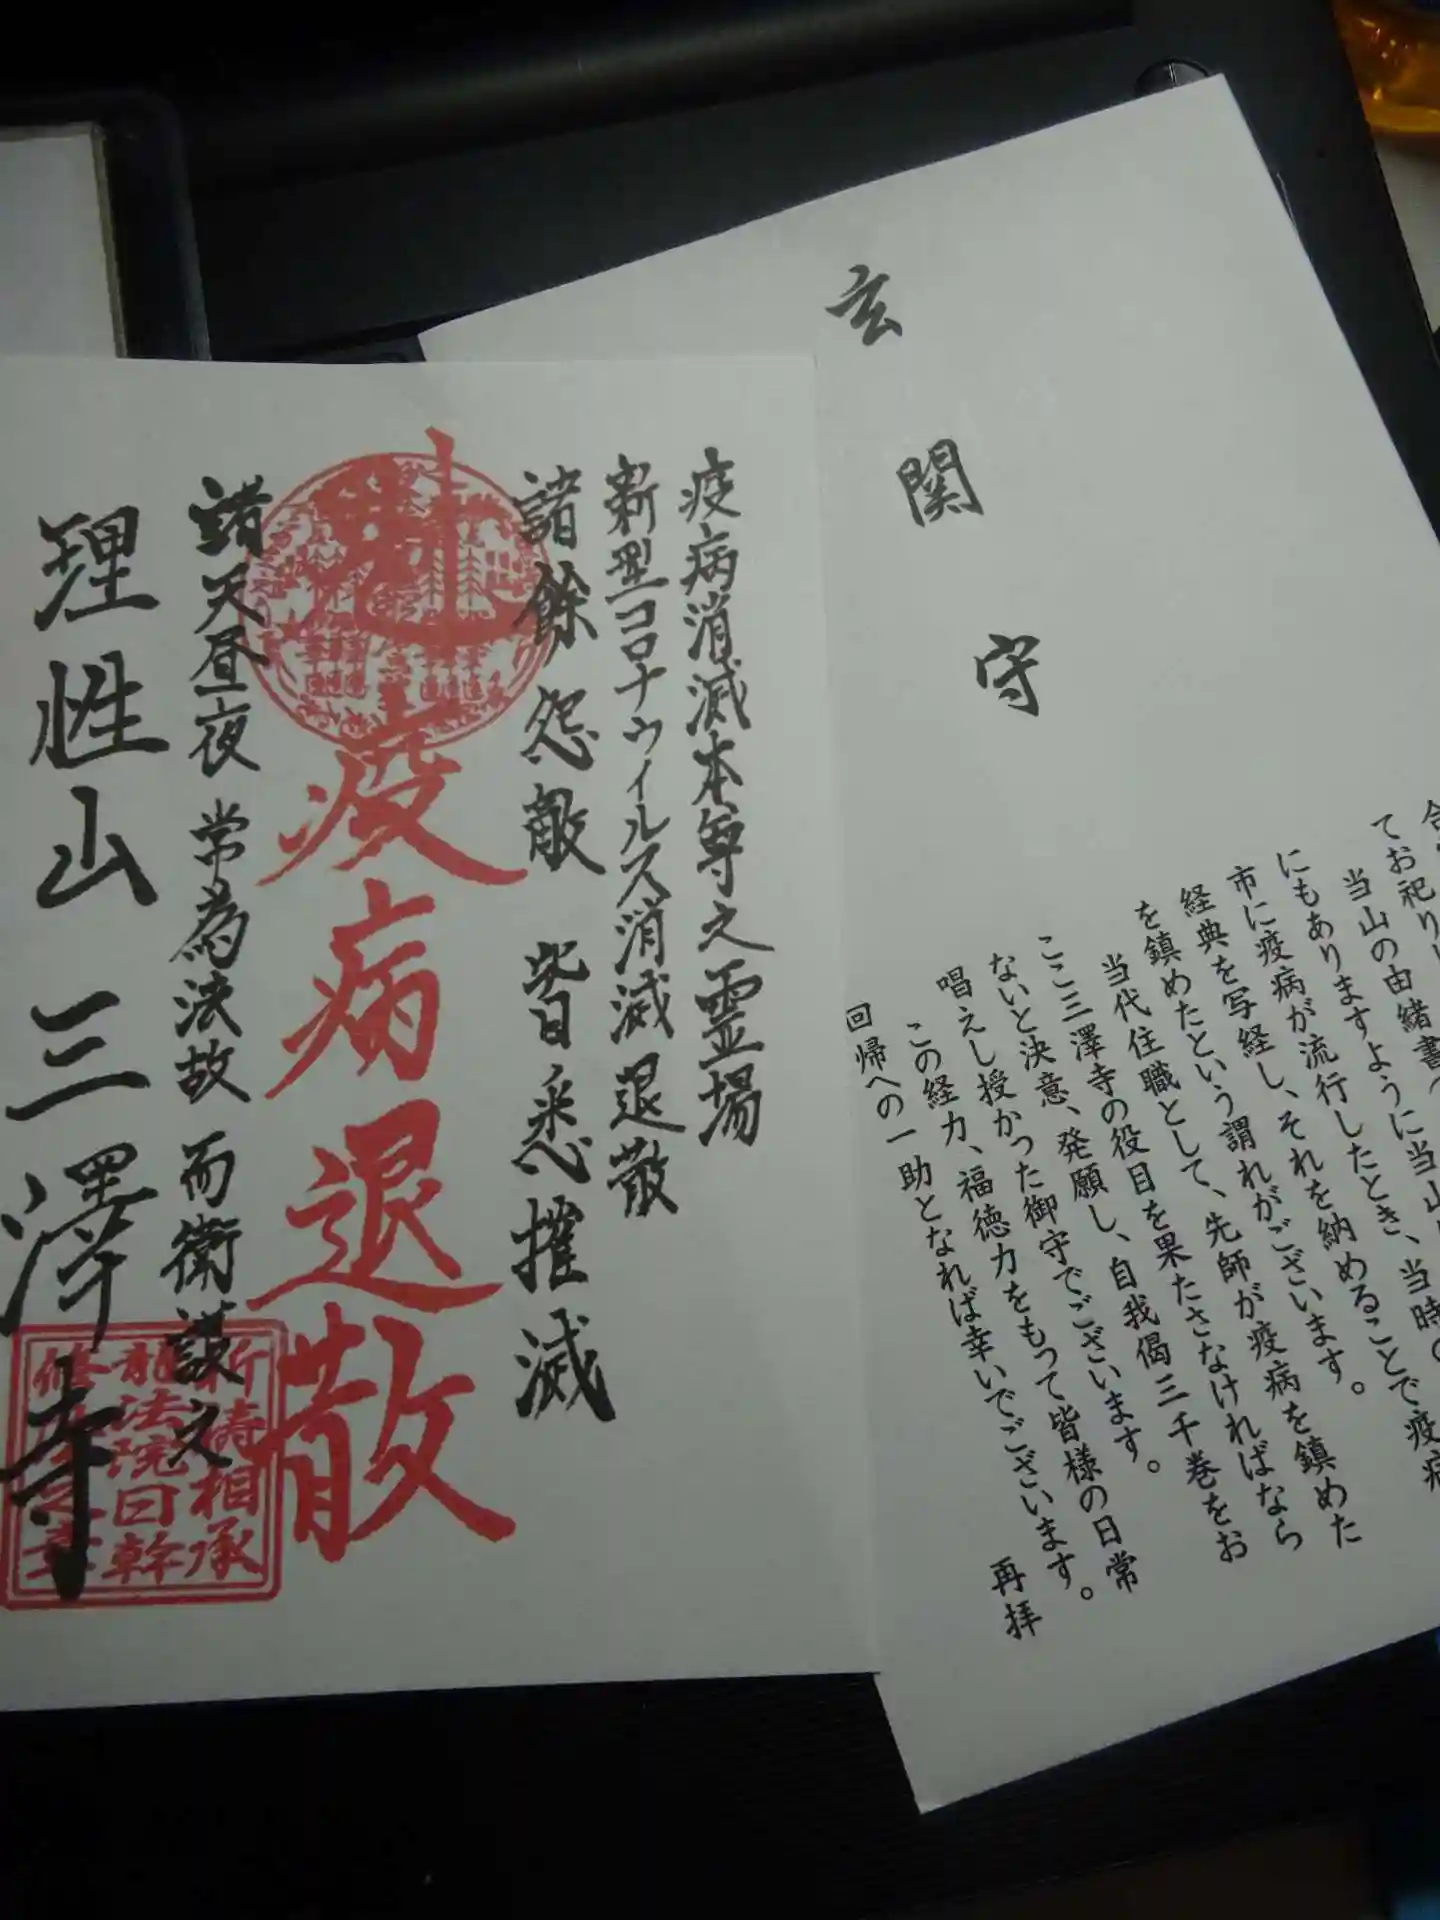 玄関守
てお祀りし
当山の由緒書
にもありますように当山
市に疫病が流行したとき、当時の
経典を写経し、それを納めることで疫病
を鎮めたという謂れがございます。
当代住職として、先師が疫病を鎮めた
ここ三澤寺の役目を果たさなければなら
ないと決意、発願し、自我偈三千巻をお
唱えし授かった御守でございます。
この経力、福徳力をもって皆様の日常
回帰への一助となれば幸いでございます。
再拝
疫病消滅本尊之霊場
新型コロナウィルス消滅退散
諸餘怨敵 皆悉摧滅
疫病退散
諸天昼夜 常為法故 而衛護之
理性山 三澤寺
祈祷相承
龍法院日幹